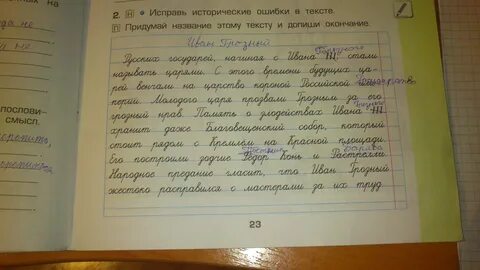 2. Н Исправь исторические ошибки в тексте.
П Придумай название этому тексту и допиши окончание.
Иван Грозный
Грозного
Русских государей, начиная с Ивана III, стали
называть царями. С этого времени будущих ца-
рей венчали на царство короной Российской им-
перии. Молодого царя прозвали Грозным за его
Грозного
грозный нрав. Память о злодействах Ивана III
хранит даже Благовещенский собор, который
стоит рядом с Кремлём на Красной площади.
Постник Барма
Его построили зодчие Фёдор Конь и Растрелли.
Народное предание гласит, что Иван Грозный
жестоко расправился с мастерами за их труд
23
ПОСЛОВИ-
СМЫСЛ.